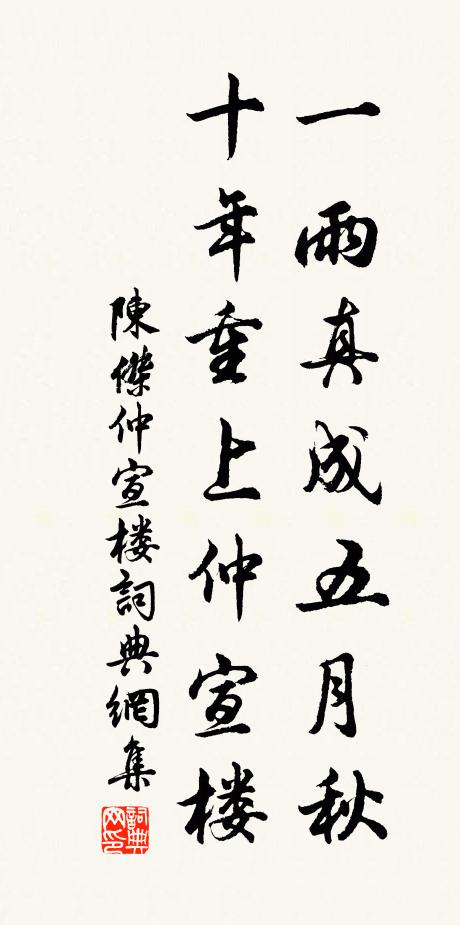 一雨真成五月秋
十年重上仲宣楼
陳傑仲宣楼詞典網集
詞典
网印